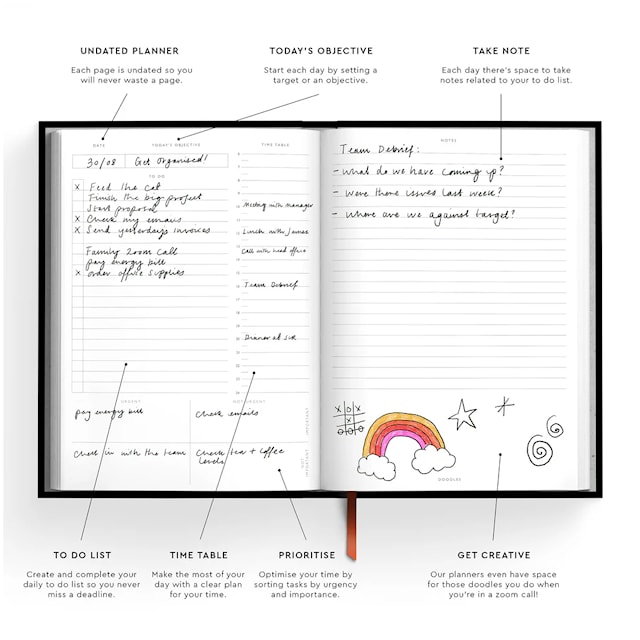 UNDATED PLANNER
Each page is undated so you
will never waste a page.
TODAY'S OBJECTIVE
Start each day by setting a
target or an objective.
TAKE NOTE
Each day there's space to take
notes related to your to do list.
DATE
TODAY'S OBJECTIVE
30/08
Get Organised!
TO DO
x Feed the cat
Finish the big project
Start proposal
x Check my emails
x Send yesterdays invoices
Family Zoom call
pay energy bill
x order office supplies
TIME TABLE
Meeting with manager
Lunch with James
Call with head office
Team Debrief
Dinner at six
URGENT
NOT URGENT
pay energy bill
Check emails
IMPORTANT
Check in with the team
Check tea + coffee
levels
NOT
IMPORTANT
NOTES
Team Debrief:
- what do we have coming up?
- were there issues last week?
- where are we against target?
x o x
x
o o o
DOODLES
TO DO LIST
Create and complete your
daily to do list so you never
miss a deadline.
TIME TABLE
Make the most of your
day with a clear plan
for your time.
PRIORITISE
Optimise your time by
sorting tasks by urgency
and importance.
GET CREATIVE
Our planners even have space
for those doodles you do when
you're in a zoom call!